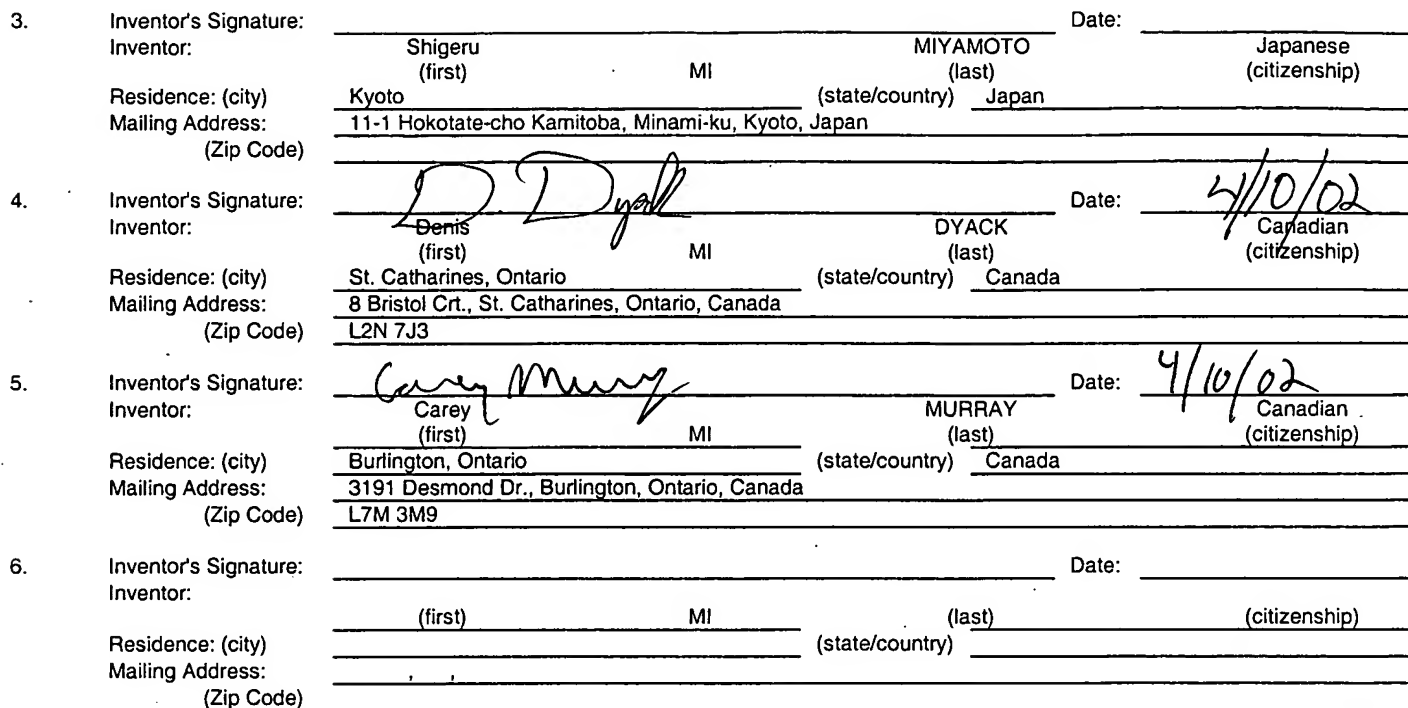 3. Inventor's Signature: Date:
Inventor: Shigeru MIYAMOTO Japanese
(first) MI (last) (citizenship)
Residence: (city) Kyoto (state/country) Japan
Mailing Address: 11-1 Hokotate-cho Kamitoba, Minami-ku, Kyoto, Japan
(Zip Code)
4. Inventor's Signature: D. Dyack Date: 4/10/02
Inventor: Denis DYACK Canadian
(first) MI (last) (citizenship)
Residence: (city) St. Catharines, Ontario (state/country) Canada
Mailing Address: 8 Bristol Crt., St. Catharines, Ontario, Canada
(Zip Code) L2N 7J3
5. Inventor's Signature: Carey Murray Date: 4/10/02
Inventor: Carey MURRAY Canadian
(first) MI (last) (citizenship)
Residence: (city) Burlington, Ontario (state/country) Canada
Mailing Address: 3191 Desmond Dr., Burlington, Ontario, Canada
(Zip Code) L7M 3M9
6. Inventor's Signature: Date:
Inventor:
(first) MI (last) (citizenship)
Residence: (city) (state/country)
Mailing Address: , ,
(Zip Code)